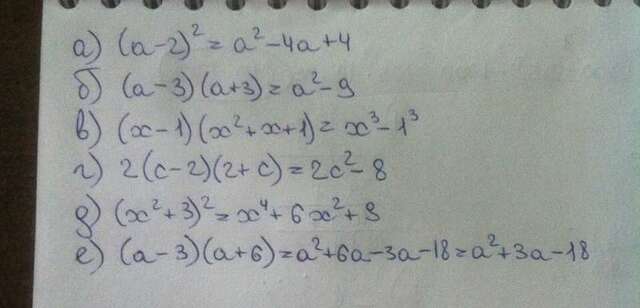 а) (a-2)² = a²-4a+4
б) (a-3)(a+3) = a²-9
в) (x-1)(x²+x+1) = x³-1³
г) 2(c-2)(2+c) = 2c²-8
д) (x²+3)² = x⁴+6x²+9
е) (a-3)(a+6) = a²+6a-3a-18 = a²+3a-18